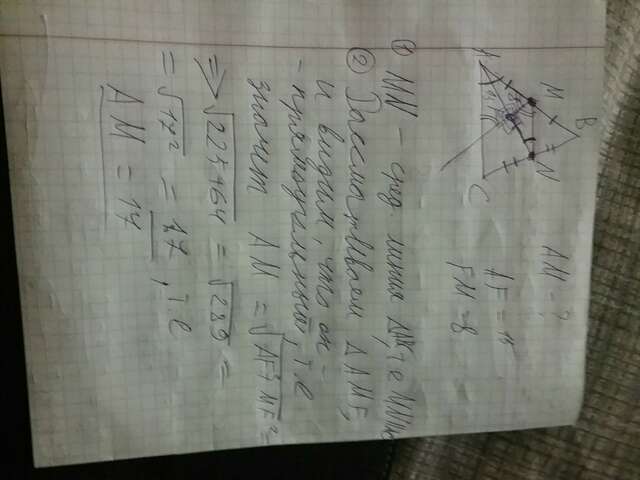 B
M
N
A
C
AM - ?
AF = 15
FM = 8
① MN – сред. линия Δ
② Рассматриваем Δ AMF,
и видим, что он -
- прямоугольный, т.е
значит AM = √AF²+MF² =
=> √225+64 = √289 =
= √17² = 17, т.е
AM = 17